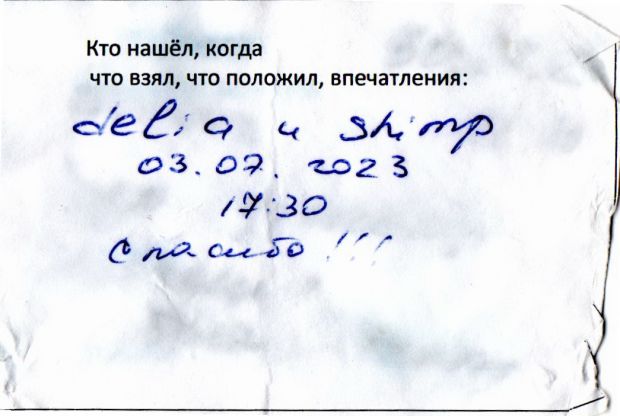 Кто нашёл, когда
что взял, что положил, впечатления:
delia и shimp
03.07.2023
17:30
Спасибо !!!